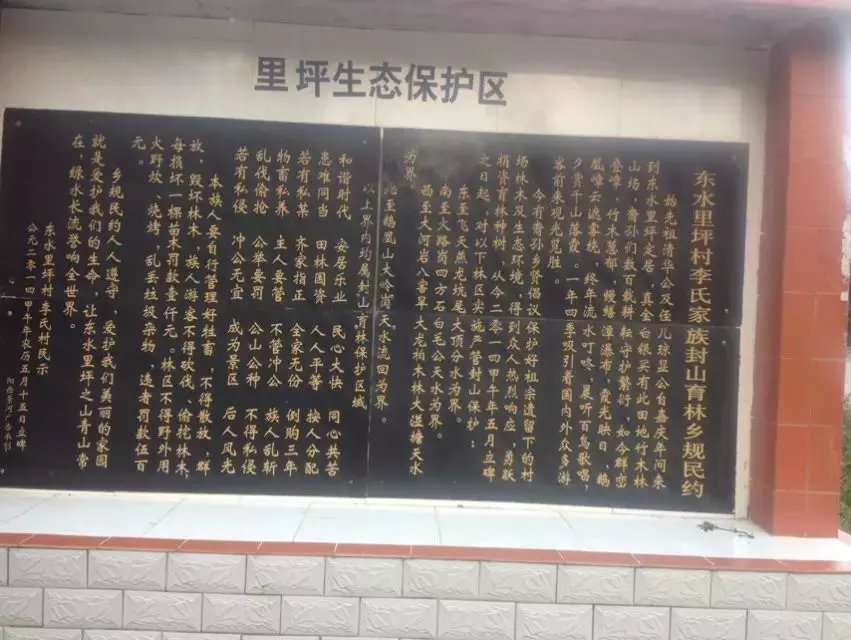 里坪生态保护区
东水里坪村李氏家族封山育林乡规民约
始先祖清华公及侄儿琼显公自嘉庆年间来
到东水里坪定居,真金白银买有此田地竹木林
山场,裔孙们数百载耕耘守护繁衍,如今群峦
叠峰,竹木葱郁,鳗蟠潭瀑布,霞光映日,鹤
凰峰云遮雾绕,终年流水叮咚,晨听百鸟歌唱,
夕赏千山落霞。一年四季吸引着国内外众多游
客前来观光览胜。
今有裔孙乡贤倡议保护好祖宗遗留下的村
场林木及生态环境,得到众人热烈响应,勇跃
捐资育林种树,从今二零一四甲午年五月立碑
之日起,对以下林区实施严管封山保护:
东至飞天燕龙坑尾大顶分水为界。
南至大路岗四方石白毛公天水为界。
西至大河岩八寄旱大龙柏木林大湴塘天水
为界
北至鹤凰山大岭岗天水流回为界。
以上界内均属封山育林保护区域
和谐时代 安居乐业 民心大快 同心共苦
患难同当 田林国资 人人平等 按人分配
若有私某 齐家指正 全家无份 倒购三年
物畜私养 主人要管 不管冲公 族人乱斩
乱伐偷抢 公举要罚 公山公种 不得私侵
若有私侵 冲公无宜 成为景区 后人风光
本族人要自行管理好牲畜,不得散放,群
放,毁坏林木,族人游客不得砍伐、偷挖林木,
每损坏一棵苗木罚款壹仟元。林区不得野外用
火野炊、烧烤,乱丢垃圾杂物,违者罚款伍百
元。
乡规民约人人遵守,爱护我们美丽的家园
就是爱护我们的生命,让东水里坪之山青山常
在,绿水长流誉响全世界。
东水里坪村李氏村民示
公元二零一四甲午年农历五月十五日立碑